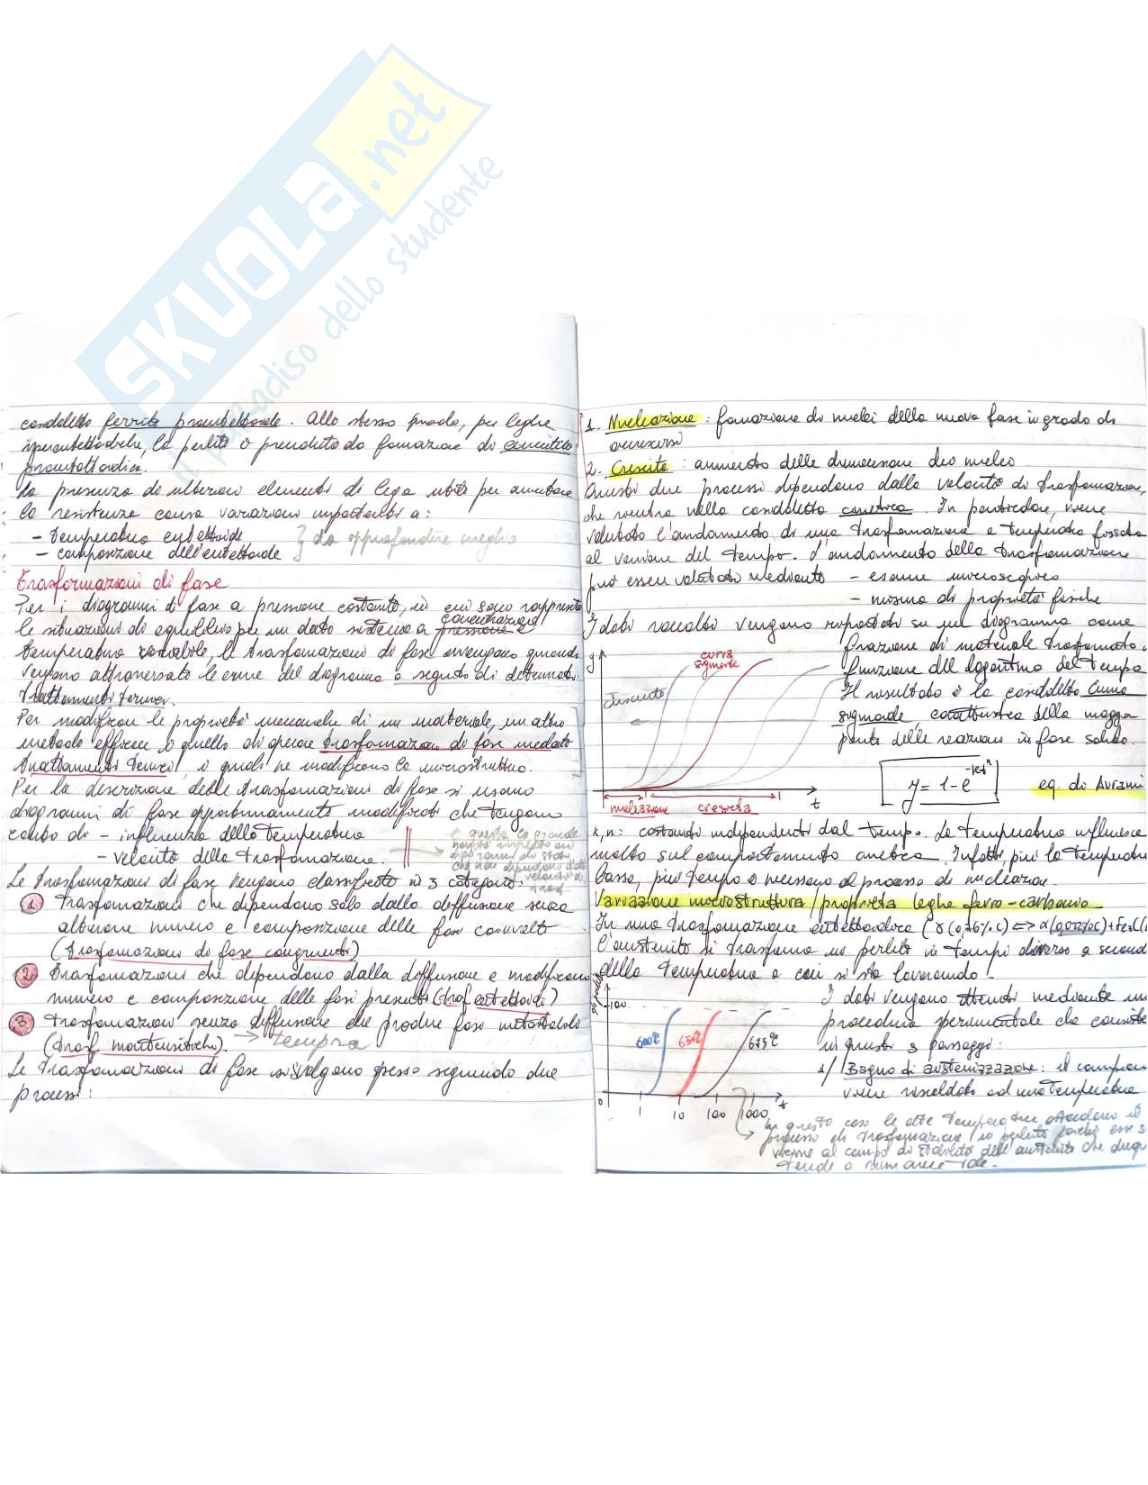 SKUOLA.net
il paradiso dello studente
cosiddetta ferrite proeutettoide. Allo stesso modo, per leghe
ipereutettoidiche, la perlite è preceduta da formazione di cementite
proeutettoidica.
La presenza di ulteriori elementi di lega utili per aumentare
la resistenza causa variazioni importanti a:
- temperatura eutettoide
- composizione dell'eutettoide } da approfondire meglio
Trasformazioni di fase
Per i diagrammi di fase a pressione costante, in cui sono rappresentate
le situazioni di equilibrio per un dato sistema a pressione e
concentrazione
temperatura variabile, le trasformazioni di fase avvengono quando
vengono attraversate le curve del diagramma a seguito di determinati
trattamenti termici.
Per modificare le proprietà meccaniche di un materiale, un altro
metodo efficace è quello di operare trasformazioni di fase mediante
trattamenti termici, i quali ne modificano la microstruttura.
Per la descrizione delle trasformazioni di fase si usano
diagrammi di fase opportunamente modificati che tengono
conto di - influenza della temperatura
- velocità della trasformazione.
è questa la grande
novità rispetto ai
diagrammi di stato
che non dipendono dalla
velocità di
trasf.
Le trasformazioni di fase vengono classificate in 3 categorie:
1 Trasformazioni che dipendono solo dalla diffusione senza
alterare numero e composizione delle fasi coinvolte
(trasformazioni di fase congruenti)
2 Trasformazioni che dipendono dalla diffusione e modificano
numero e composizione delle fasi presenti (trasf. eutettoidi)
3 Trasformazioni senza diffusione che produce fase metastabile
(trasf. martensitiche). → tempra
Le trasformazioni di fase si svolgono spesso seguendo due
processi:
1. Nucleazione: formazione di nuclei della nuova fase in grado di
accrescersi
2. Crescita: aumento delle dimensioni dei nuclei
Questi due processi dipendono dalla velocità di trasformazione,
che rientra nella cosiddetta cinetica. In particolare, viene
valutato l'andamento di una trasformazione a temperatura fissata
al variare del tempo. L'andamento della trasformazione
può essere valutato mediante - esame microscopico
- misura di proprietà fisiche
I dati raccolti vengono riportati su un diagramma come
frazione di materiale trasformato.
funzione del logaritmo del tempo
Il risultato è la cosiddetta curva
sigmoide, caratteristica della maggior
parte delle reazioni in fase solida.
y
curva
sigmoide
nucleazione crescita t
y = 1 - e^-kt^n
eq. di Avrami
k, n: costanti indipendenti dal tempo. La temperatura influisce
molto sul comportamento cinetico. Infatti, più la temperatura
bassa, più tempo è necessario al processo di nucleazione.
Variazione microstruttura/proprietà leghe ferro-carbonio
In una trasformazione eutettoidica (γ(0,76%C) <=> α(0,022%C)+Fe3C
l'austenite si trasforma in perlite in tempi diversi a seconda
della temperatura a cui si sta lavorando.
I dati vengono ottenuti mediante una
procedura sperimentale che consiste
in questi 3 passaggi:
1/ Bagno di austenizzazione: il campione
viene riscaldato ad una temperatura
% perlite
100
600°C 650°C 675°C
0 1 10 100 1000 t
In questo caso le alte temperature ostacolano il
processo di trasformazione in perlite perché esse sono
vicine al campo di stabilità dell'austenite che dunque
tende a rimanere tale.